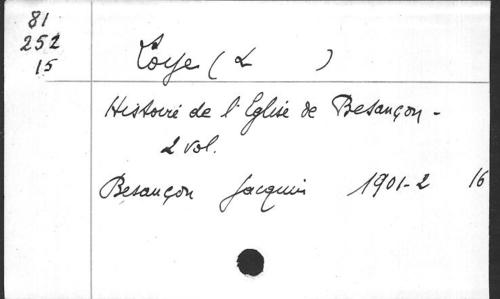 81
252
15
Loye (L )
Histoire de l'Eglise de Besançon -
2 vol.
Besançon Jacquin 1901-2 16